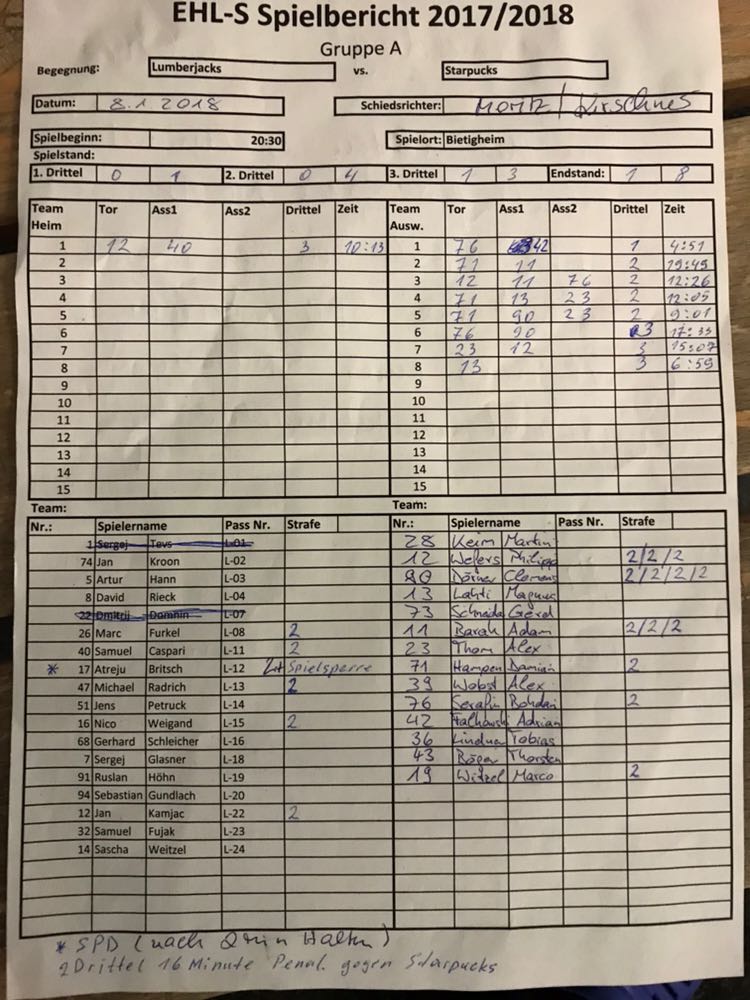 EHL-S Spielbericht 2017/2018
Gruppe A
Begegnung: Lumberjacks vs. Starpucks
Datum: 8.1 2018 Schiedsrichter: Moritz / Kirschner
Spielbeginn: 20:30 Spielort: Bietigheim
Spielstand:
1. Drittel 0 1 2. Drittel 0 4 3. Drittel 1 3 Endstand: 1 8
Team Heim Tor Ass1 Ass2 Drittel Zeit Team Ausw. Tor Ass1 Ass2 Drittel Zeit
1 12 40 3 10:13 1 76 42 1 4:51
2 2 71 11 2 19:49
3 3 12 11 76 2 12:26
4 4 71 13 23 2 12:05
5 5 71 90 23 2 9:01
6 6 76 90 3 17:33
7 7 23 12 3 15:07
8 8 13 3 6:59
9 9
10 10
11 11
12 12
13 13
14 14
15 15
Team: Team:
Nr.: Spielername Pass Nr. Strafe Nr.: Spielername Pass Nr. Strafe
1 Sergej Tevs L-01 28 Keim Martin
74 Jan Kroon L-02 12 Wefers Philipp 2/2/2
5 Artur Hann L-03 90 Dörner Clemens 2/2/2/2
8 David Rieck L-04 13 Lahti Magnus
22 Dmitrij Domnin L-07 73 Schneida Gerd
26 Marc Furkel L-08 2 11 Barak Adam 2/2/2
40 Samuel Caspari L-11 2 23 Thom Alex
* 17 Atreju Britsch L-12 2+Spielsperre 71 Hampen Damian 2
47 Michael Radrich L-13 2 39 Wobst Alex
51 Jens Petruck L-14 76 Serafin Bohdan 2
16 Nico Weigand L-15 2 42 Falkowski Adrian
68 Gerhard Schleicher L-16 36 Lindner Tobias
7 Sergej Glasner L-18 43 Böger Thorsten
91 Ruslan Höhn L-19 19 Witzel Marco 2
94 Sebastian Gundlach L-20
12 Jan Kamjac L-22 2
32 Samuel Fujak L-23
14 Sascha Weitzel L-24
* SPD (nach 2min Halten)
2 Drittel 16 Minute Penal. gegen Starpucks